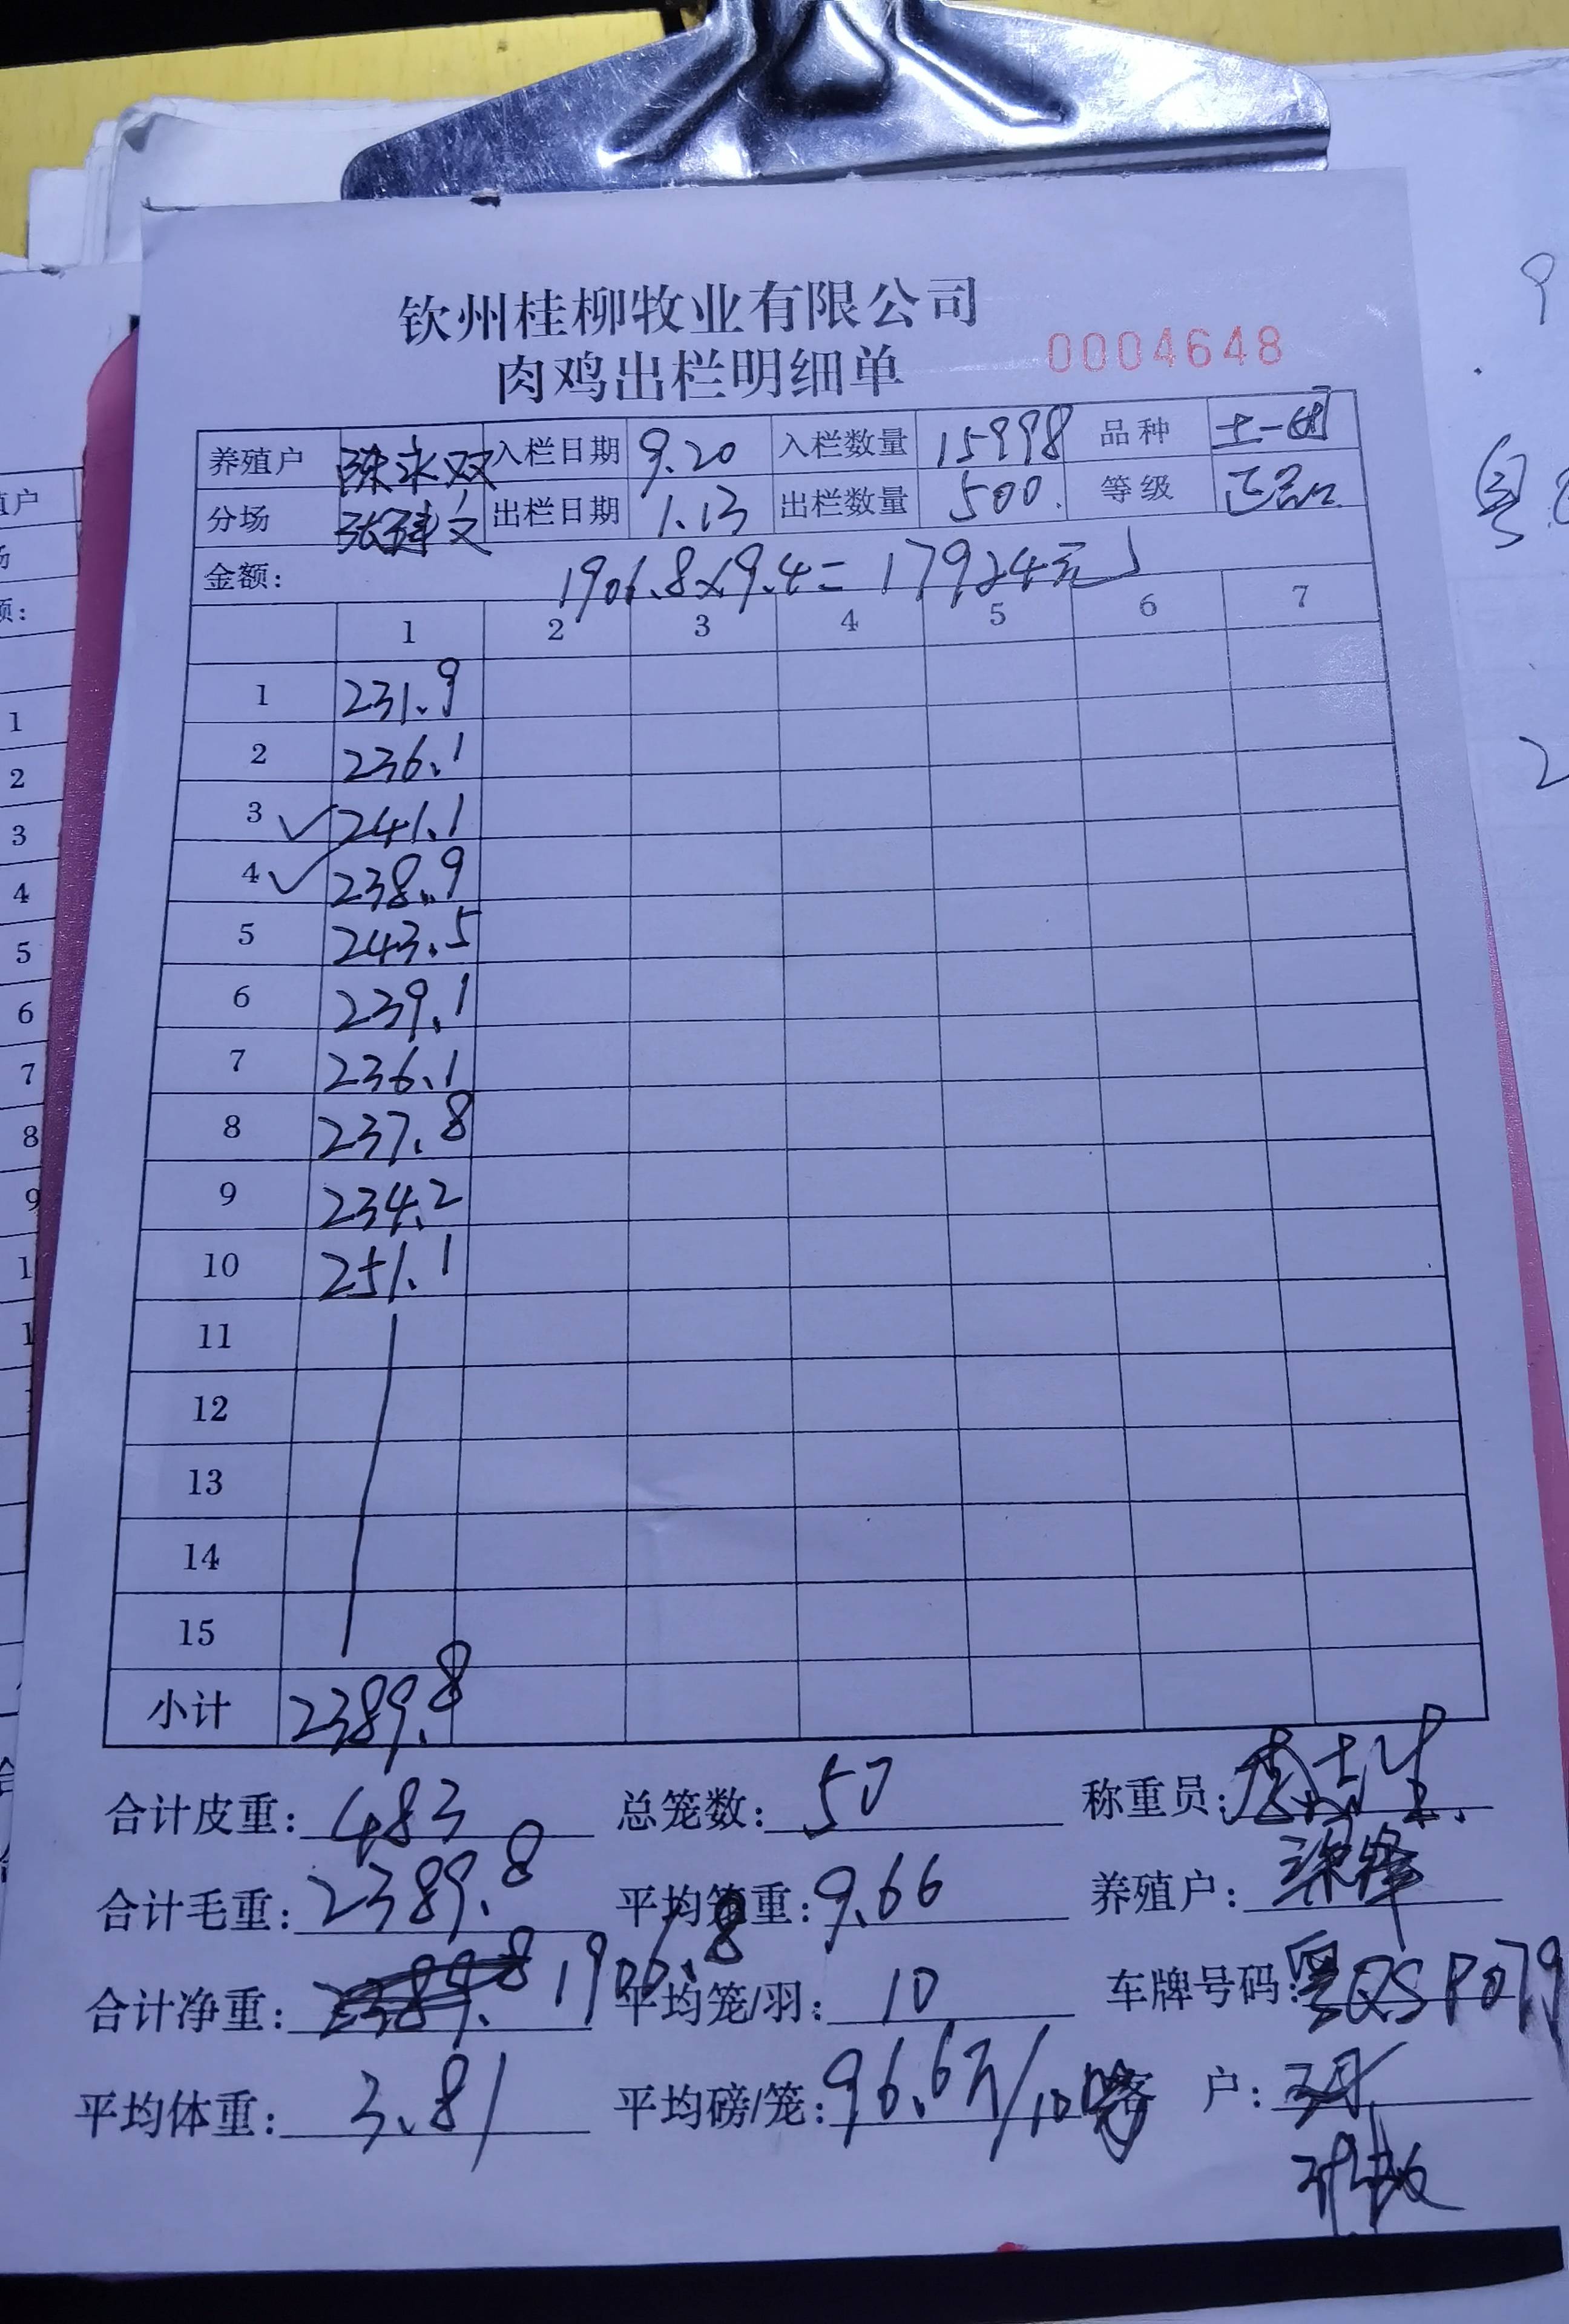 钦州桂柳牧业有限公司
肉鸡出栏明细单 0004648
养殖户 陈永双 入栏日期 9.20 入栏数量 15998 品种 土一
分场 张建文 出栏日期 1.13 出栏数量 500. 等级 正品
金额: 1906.8×9.4=17924元
1 2 3 4 5 6 7
1 231.9
2 236.1
3 ✓ 241.1
4 ✓ 238.9
5 243.5
6 239.1
7 236.1
8 237.8
9 234.2
10 251.1
11
12
13
14
15
小计 2389.8
合计皮重: 483 总笼数: 50 称重员:
合计毛重: 2389.8 平均笼重: 9.66 养殖户: 梁锋
合计净重: 2389.8 1906.8 平均笼/羽: 10 车牌号码: 粤QSP079
平均体重: 3.81 平均磅/笼: 96.6斤/10 客户: